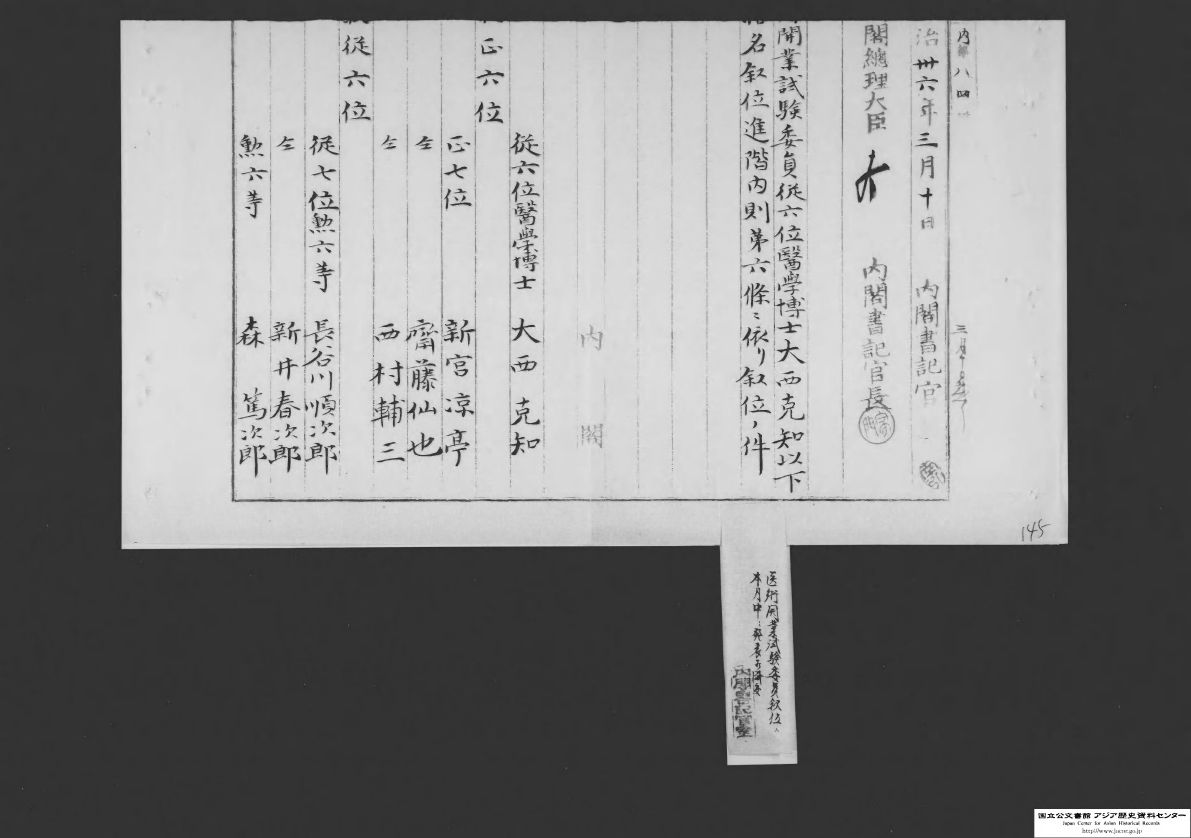 内 八四
治卅六年三月十日 内閣書記官
閣總理大臣 内閣書記官長
開業試験委員従六位醫學博士大西克知以下
名叙位進階内則第六條ニ依リ叙位ノ件
内閣
従六位醫學博士 大西克知
正六位
正七位 新宮凉亭
仝 齋藤仙也
仝 西村輔三
従六位
従七位勲六等 長谷川順次郎
仝 新井春次郎
勲六等 森篤次郎
145
医術開業試験委員叙位ハ
本月中ニ発表
国立公文書館 アジア歴史資料センター
Japan Center for Asian Historical Records
http://www.jacar.go.jp